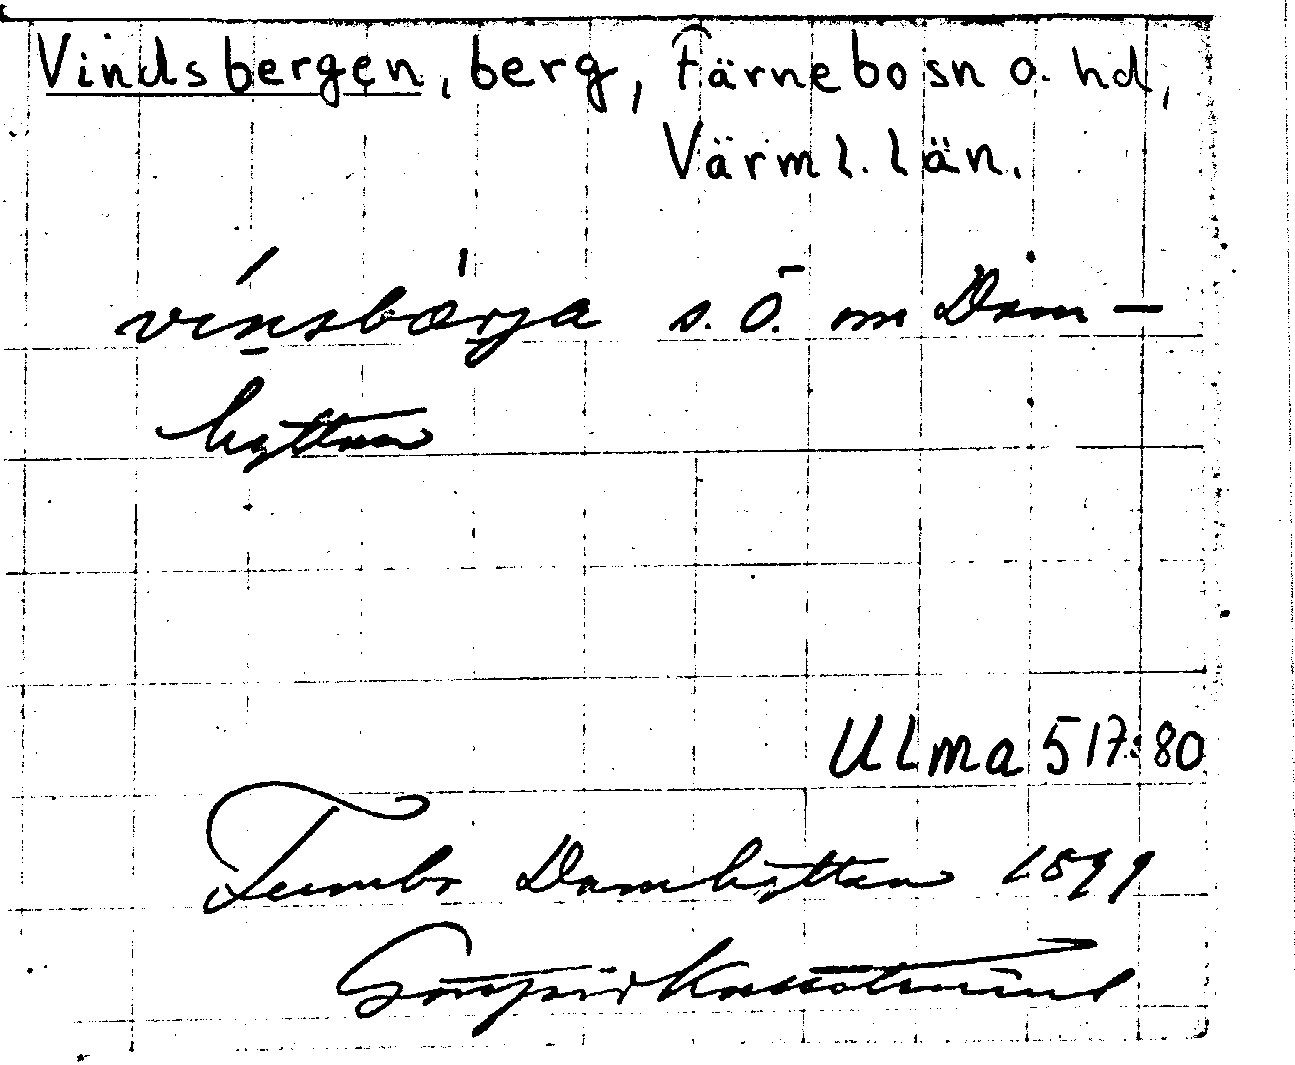 Vindsbergen, berg, Färnebo sn o. hd,
Värml. län.
vinsbærja s.ö. om Dam-
hyttan
Ulma 517:80
Damhyttan 1899